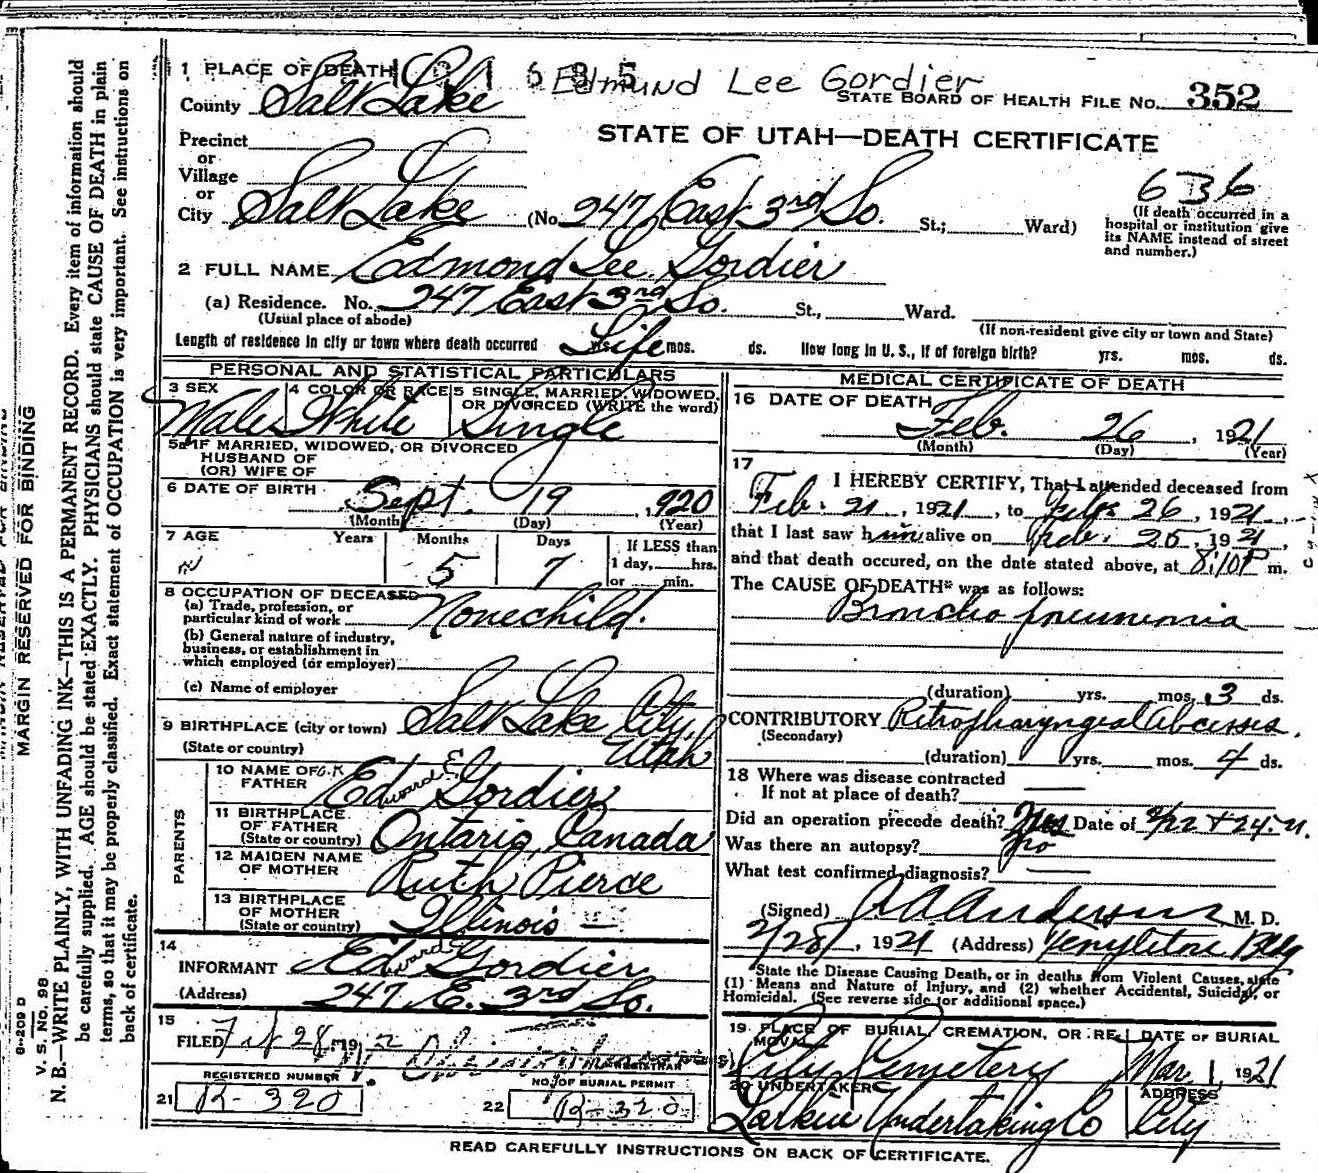 1 PLACE OF DEATH 101685 Edmund Lee Gordier
County Salt Lake STATE BOARD OF HEALTH FILE No. 352
Precinct STATE OF UTAH—DEATH CERTIFICATE
or
Village
or
City Salt Lake (No 247 East 3rd So. St.; Ward)
636
(If death occurred in a
hospital or institution give
its NAME instead of street
and number.)
2 FULL NAME Edmond Lee Gordier
(a) Residence. No. 247 East 3rd So. St., Ward.
(Usual place of abode) (If non-resident give city or town and State)
Length of residence in city or town where death occurred Life yrs. mos. ds. How long in U. S., if of foreign birth? yrs. mos. ds.
PERSONAL AND STATISTICAL PARTICULARS
3 SEX Male
4 COLOR OR RACE White
5 SINGLE, MARRIED, WIDOWED,
OR DIVORCED (WRITE the word)
Single
5a IF MARRIED, WIDOWED, OR DIVORCED
HUSBAND OF
(OR) WIFE OF
6 DATE OF BIRTH Sept. 19, 1920
(Month) (Day) (Year)
7 AGE Years Months Days If LESS than
1 day, hrs.
or min.
5 7
8 OCCUPATION OF DECEASED
(a) Trade, profession, or
particular kind of work None child.
(b) General nature of industry,
business, or establishment in
which employed (or employer)
(c) Name of employer
9 BIRTHPLACE (city or town) Salt Lake City,
(State or country) Utah
PARENTS
10 NAME OF
FATHER Edward E Gordier
11 BIRTHPLACE
OF FATHER
(State or country) Ontario, Canada
12 MAIDEN NAME
OF MOTHER Ruth Pierce
13 BIRTHPLACE
OF MOTHER
(State or country) Illinois
14
INFORMANT Edward E Gordier
(Address) 247 E. 3rd So.
15
FILED 28, 192
REGISTRAR
REGISTERED NUMBER
21 R-320
NO. OF BURIAL PERMIT
22 R-320
MEDICAL CERTIFICATE OF DEATH
16 DATE OF DEATH
Feb. 26, 1921
(Month) (Day) (Year)
17
I HEREBY CERTIFY, That I attended deceased from
Feb. 21, 1921, to Feb. 26, 1921,
that I last saw him alive on Feb. 25, 1921,
and that death occured, on the date stated above, at 8:10P m.
The CAUSE OF DEATH* was as follows:
Broncho pneumonia
(duration) yrs. mos. 3 ds.
CONTRIBUTORY Retropharyngeal Abcesses.
(Secondary)
(duration) yrs. mos. 4 ds.
18 Where was disease contracted
If not at place of death?
Did an operation precede death? Yes Date of 2/22 + 24-21.
Was there an autopsy? No
What test confirmed diagnosis?
(Signed) A A Anderson M. D.
2/28, 1921 (Address) Templeton Bldg
State the Disease Causing Death, or in deaths from Violent Causes, state
(1) Means and Nature of Injury, and (2) whether Accidental, Suicidal, or
Homicidal. (See reverse side for additional space.)
19 PLACE OF BURIAL, CREMATION, OR RE-
MOVAL
City Cemetery
DATE OF BURIAL
Mar 1, 1921
20 UNDERTAKER
Larkin Undertaking Co
ADDRESS
City
READ CAREFULLY INSTRUCTIONS ON BACK OF CERTIFICATE.
MARGIN RESERVED FOR BINDING
8-209 D
V. S. NO. 98
N. B.—WRITE PLAINLY, WITH UNFADING INK—THIS IS A PERMANENT RECORD. Every item of information should
be carefully supplied. AGE should be stated EXACTLY. PHYSICIANS should state CAUSE OF DEATH in plain
terms, so that it may be properly classified. Exact statement of OCCUPATION is very important. See instructions on
back of certificate.